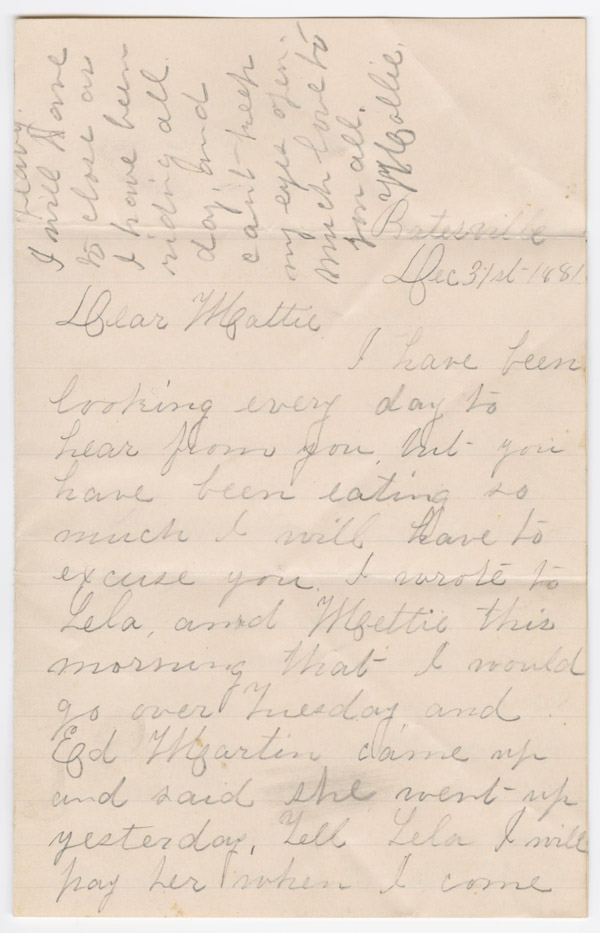 Batesville
Dec 31st 1881
Dear Mattie
I have been
looking every day to
hear from you, but you
have been eating so
much I will have to
excuse you. I wrote to
Lela, and Mettie this
morning that I would
go over Tuesday and
Ed Martin came up
and said she went up
yesterday. Tell Lela I will
pay her when I come
heavy.
I will have
to close as
I have been
riding all
day, and
can't keep
my eyes open.
Much love to
you all.
Mollie.